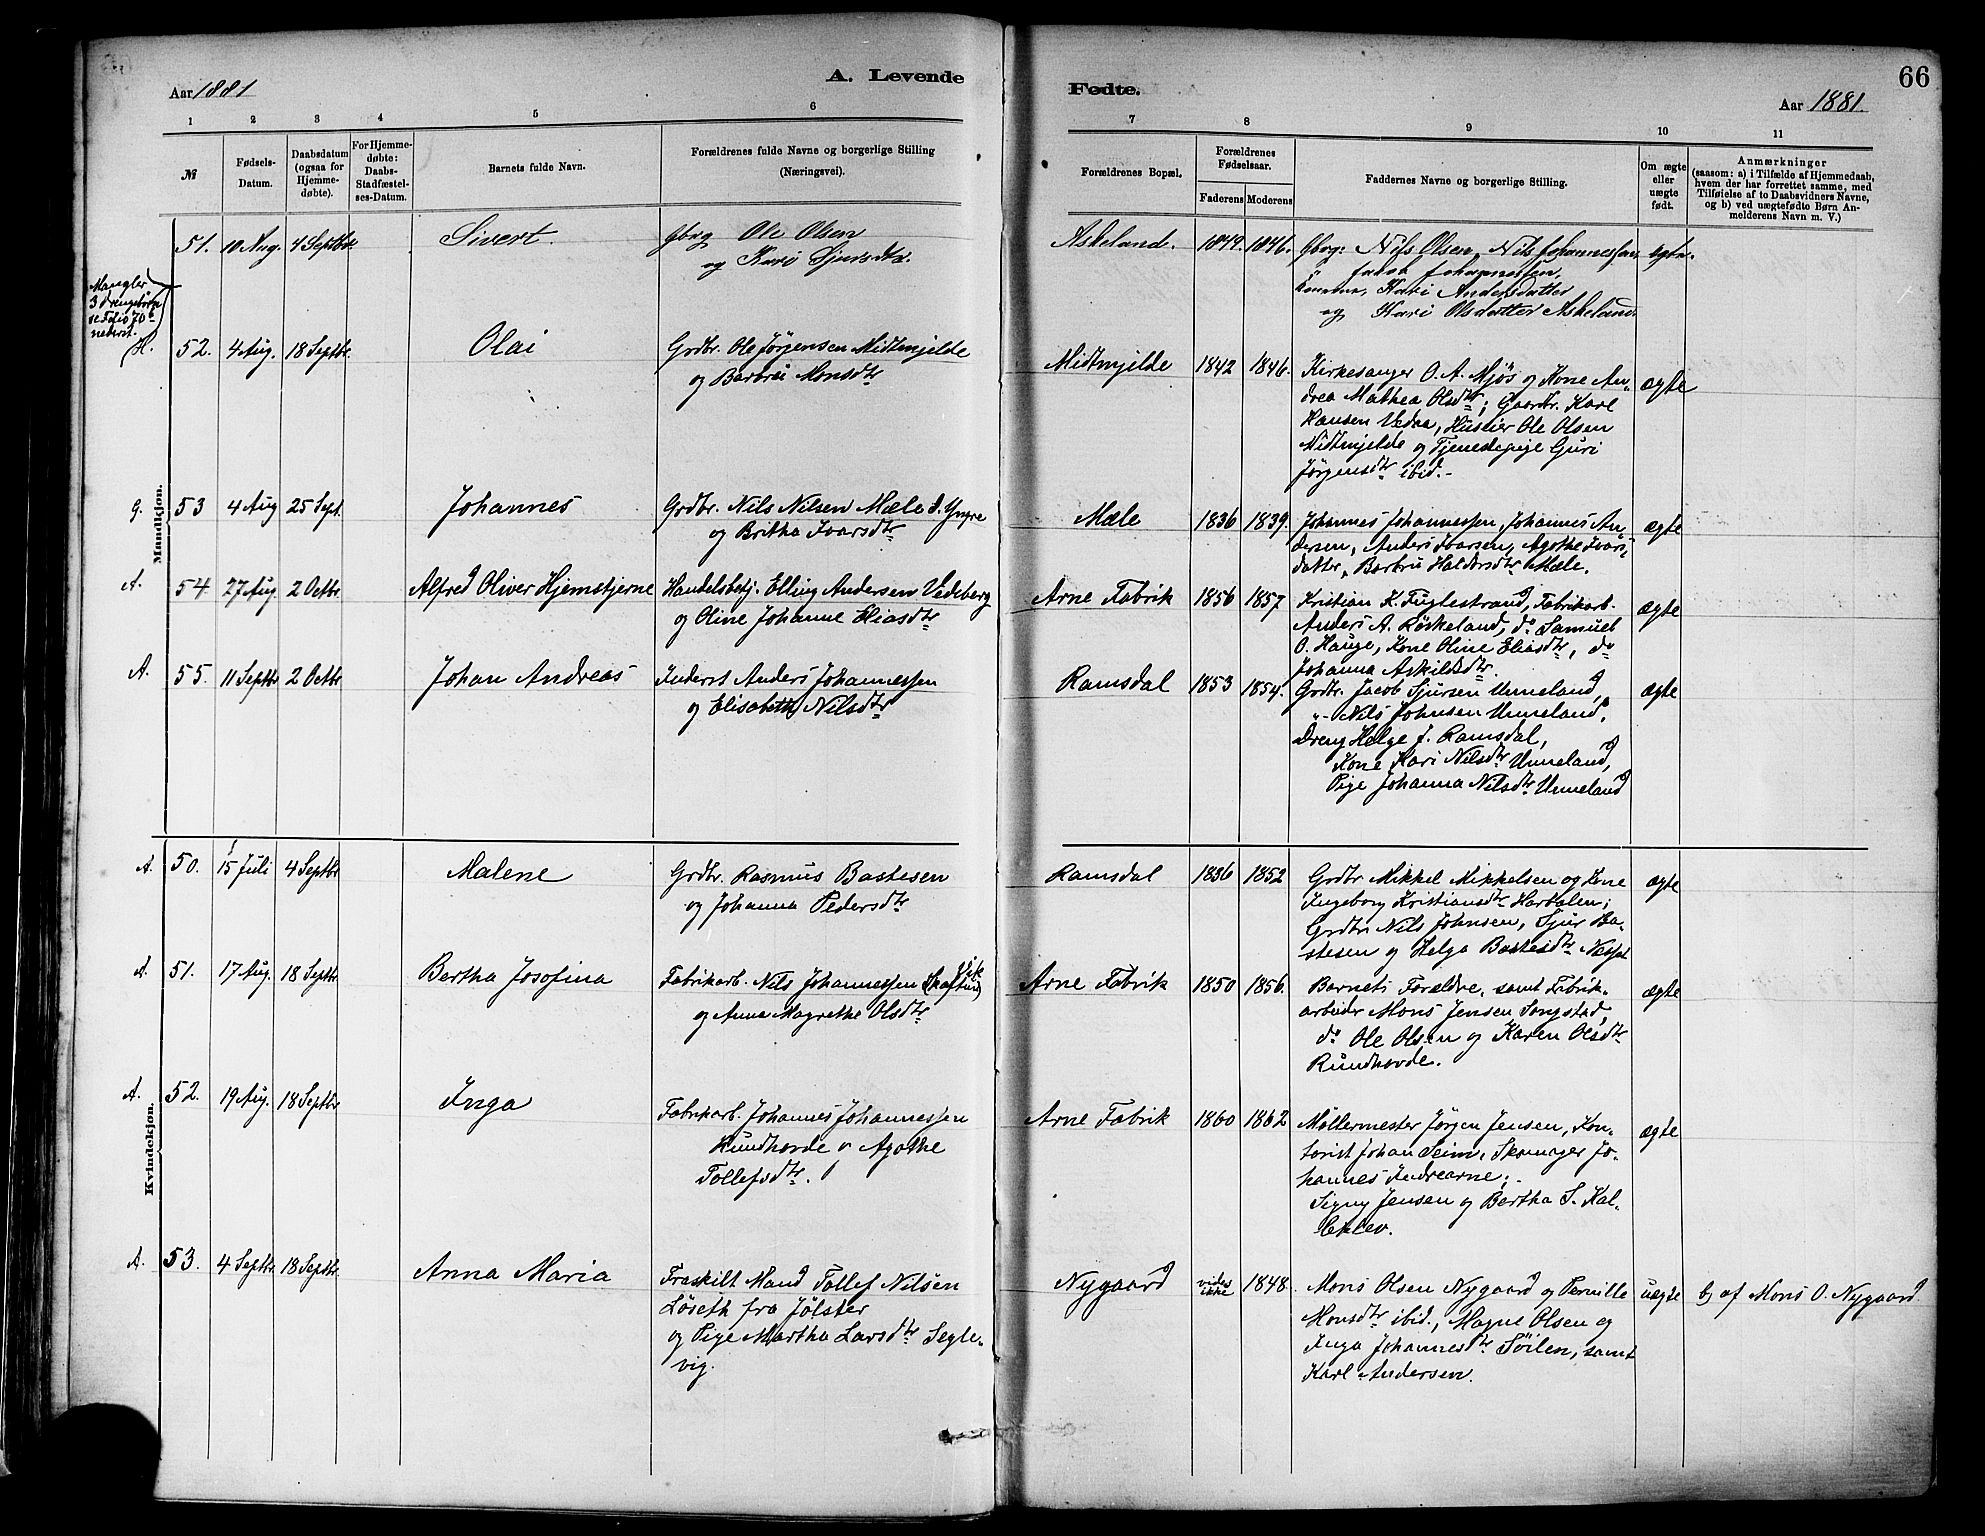 Aar 1881
A. Levende
Fødte.
66
Aar 1881.
1 2 3 4 5 6
7 8 9 10 11
№
Fødsels-
Datum.
Daabsdatum
(ogsaa for
Hjemme-
døbte).
For Hjemme-
døbte:
Daabs-
Stadfæstel-
ses-Datum.
Barnets fulde Navn.
Forældrenes fulde Navne og borgerlige Stilling
(Næringsvei).
Forældrenes Bopæl.
Forældrenes
Fødselsaar.
Faderens Moderens
Faddernes Navne og borgerlige Stilling.
Om ægte
eller
uægte
født.
Anmærkninger
(saasom: a) i Tilfælde af Hjemmedaab,
hvem der har forrettet samme, med
Tilføielse af to Daabsvidners Navne,
og b) ved uægtefødte Børn An-
melderens Navn m. V.)
Mandkjøn.
51. 10 Aug. 4 Septbr. Sivert.
Gbrg Ole Olsen
og Kari Sjursdtr.
Askeland. 1849. 1846.
Gbrg: Nils Olsen, Nils Johannessen,
" Johannessen,
Kari Andersdatter
og Kari Olsdatter Askeland
ægte.
Mangler
3 Drengebørn
se Folio 70b
nederst.
H. 52. 4 Aug. 18 Septbr. Olai
Grdbr. Ole Jørgensen Midtmjelde
og Barbrei Monsdtr
Midtmjelde 1842 1846.
Kirkesanger O. A. Mjøs og Kone An-
drea Mathea Olsdtr; Gaardbr. Karl
Hansen Vedaa, Husfier Ole Olsen
Midtmjelde og Tjenestepige Guri
Jørgensdtr ibid.-
ægte
G. 53 4 Aug 25 Sept. Johannes
Grdbr. Nils Nilsen Mæle d. Yngre
og Britha Ivarsdtr
Mæle 1836 1839.
Johannes Johannessen, Johannes An-
dersen, Anders Ivarsen, Agathe Ivars-
datter, Barbru Haldorsdtr Mæle.
ægte
A. 54. 27 Aug. 2 Octbr. Alfred Oliver Hjemstjerne
Handelsbetj. Elling Andersen Vedeberg
og Oline Johanne Eliasdtr
Arne Fabrik 1856 1857
Kristian K. Fuglestrand, Fabrikarb.
Anders A. Røskeland, do Samuel
O. Hauge, Kone Oline Eliasdtr, do
Johanna Askildsdtr.
ægte
A. 55. 11 Septbr 2 Octbr Johan Andreas
Inderst Anders Johannessen
og Elisabeth Nilsdtr
Ramsdal 1853 1854.
Grdbr. Jacob Sjursen Unneland,
"- Nils Johnsen Unneland,
Dreng Helge J. Ramsdal,
Kone Kari Nilsdtr Unneland,
Pige Johanna Nilsdtr Unneland
ægte
Kvindekjøn.
A. 50. 15 Juli 4 Septbr Malene
Grdbr. Rasmus Bastesen
og Johanna Pedersdtr
Ramsdal 1836 1852
Grdbr Mikkel Mikkelsen og Kone
Ingeborg Kristiansdtr Hardalen;
Grdbr. Nils Johnsen, Sjur Ba-
stesen og Helga Bastesdtr
ægte
A. 51. 17 Aug. 18 Septbr Bertha Josofina
Fabrikarb. Nils Johannessen
og Anna Magrethe Olsdtr
Arne Fabrik 1850 1856.
Barnets Forældre, samt Fabrik-
arbeider Mons Jensen Songstad,
do Ole Olsen og Karen Olsdtr
Rundhovde.
ægte
A. 52. 19 Aug. 18 Septbr Inga
Fabrikarb. Johannes Johannessen
Rundhovde o Agathe
Tollefsdtr.
Arne Fabrik 1860 1862
Møllermester Jørgen Jensen, Kon-
torist Johan Seim, Skomager Jo-
hannes Indrearne;
Signy Jensen og Bertha S. Kal-
leklev.
ægte
A. 53. 4 Septbr. 18 Septbr. Anna Maria
Fraskilt Mand Tollef Nilsen
Løseth fra Jølster
og Pige Martha Larsdtr Segle-
vig.
Nygaard vides
ikke 1848.
Mons Olsen Nygaard og Pernille
Monsdtr ibid., Magne Olsen og
Inga Johannesdtr Søilen, samt
Karl Andersen.
uægte b) af Mons O. Nygaard.